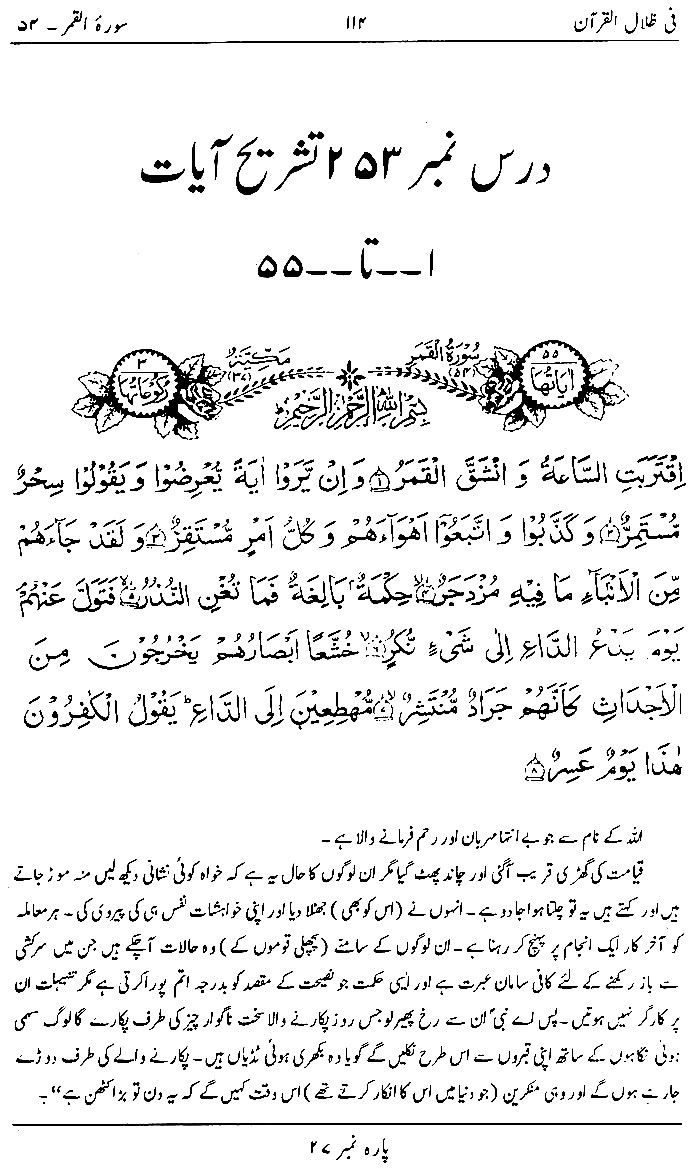 فی ظلال القرآن ۱۱۴ سورۂ القمر - ۵۴
درس نمبر ۲۵۳ تشریح آیات
۱ -- تا -- ۵۵
اٰیَاتُهَا ۵۵ سُوْرَةُ الْقَمَرِ (۵۴) مَكِّيَّةٌ (۳۷) رُكُوْعَاتُهَا ۳
بِسْمِ اللّٰهِ الرَّحْمٰنِ الرَّحِيْمِ
اِقْتَرَبَتِ السَّاعَةُ وَ انْشَقَّ الْقَمَرُ ﴿۱﴾ وَ اِنْ يَّرَوْا اٰيَةً يُّعْرِضُوْا وَ يَقُوْلُوْا سِحْرٌ
مُّسْتَمِرٌّ ﴿۲﴾ وَ كَذَّبُوْا وَ اتَّبَعُوْۤا اَهْوَآءَهُمْ وَ كُلُّ اَمْرٍ مُّسْتَقِرٌّ ﴿۳﴾ وَ لَقَدْ جَآءَهُمْ
مِّنَ الْاَنْۢبَآءِ مَا فِيْهِ مُزْدَجَرٌ ﴿۴﴾ حِكْمَةٌۢ بَالِغَةٌ فَمَا تُغْنِ النُّذُرُ ﴿۵﴾ فَتَوَلَّ عَنْهُمْ
يَوْمَ يَدْعُ الدَّاعِ اِلٰى شَيْءٍ نُّكُرٍ ﴿۶﴾ خُشَّعًا اَبْصَارُهُمْ يَخْرُجُوْنَ مِنَ
الْاَجْدَاثِ كَاَنَّهُمْ جَرَادٌ مُّنْتَشِرٌ ﴿۷﴾ مُّهْطِعِيْنَ اِلَى الدَّاعِ ؕ يَقُوْلُ الْكٰفِرُوْنَ
هٰذَا يَوْمٌ عَسِرٌ ﴿۸﴾
اللہ کے نام سے جو بے انتہا مہربان اور رحم فرمانے والا ہے۔
قیامت کی گھڑی قریب آگئی اور چاند پھٹ گیا مگر ان لوگوں کا حال یہ ہے کہ خواہ کوئی نشانی دیکھ لیں منہ موڑ جاتے
ہیں اور کہتے ہیں یہ تو چلتا ہوا جادو ہے۔ انہوں نے (اس کو بھی) جھٹلا دیا اور اپنی خواہشات نفس ہی کی پیروی کی۔ ہر معاملہ
کو آخر کار ایک انجام پر پہنچ کر رہنا ہے۔ ان لوگوں کے سامنے (پچھلی قوموں کے) وہ حالات آچکے ہیں جن میں سرکشی
سے باز رکھنے کے لئے کافی سامان عبرت ہے اور ایسی حکمت جو نصیحت کے مقصد کو بدرجہ اتم پورا کرتی ہے مگر تنبیہات ان
پر کارگر نہیں ہوتیں۔ پس اے نبیؐ ان سے رخ پھیر لو جس روز پکارنے والا سخت ناگوار چیز کی طرف پکارے گا لوگ سہمی
ہوئی نگاہوں کے ساتھ اپنی قبروں سے اس طرح نکلیں گے گویا وہ بکھری ہوئی ٹڈیاں ہیں۔ پکارنے والے کی طرف دوڑے
جارہے ہوں گے اور وہی منکرین (جو دنیا میں اس کا انکار کرتے تھے) اس وقت کہیں گے کہ یہ دن تو بڑا کٹھن ہے“۔
پارہ نمبر ۲۷